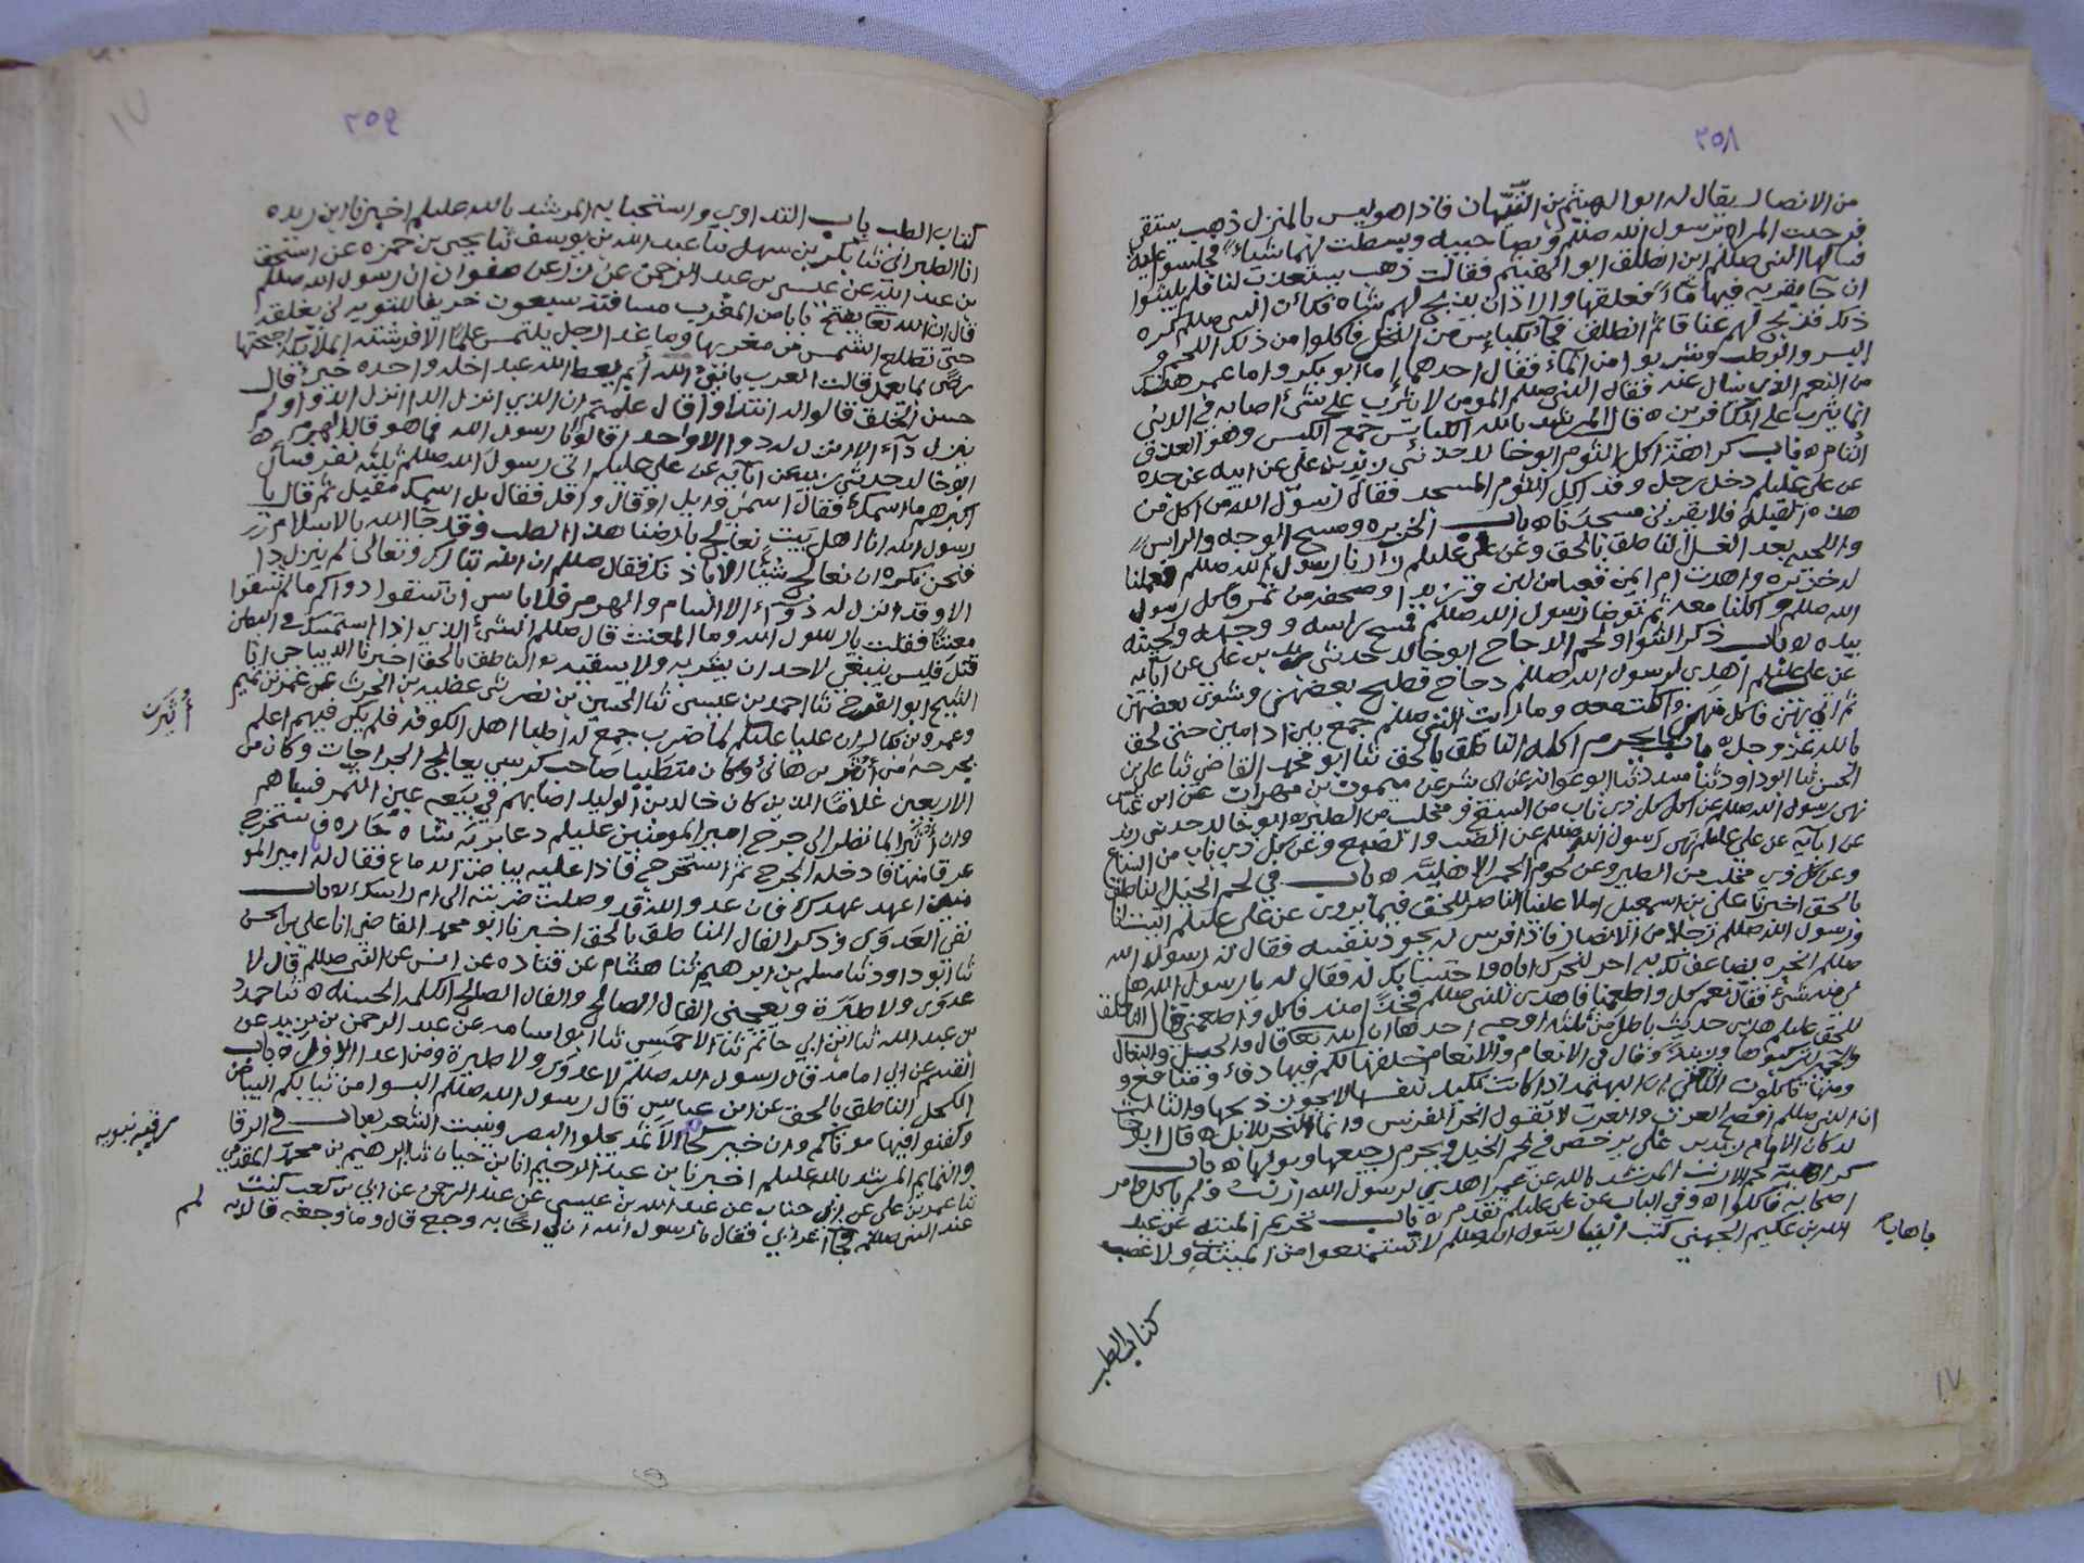 ٢٥٨
من الانصار يقال له ابو الهيثم بن التيهان فاذا هو ليس بالمنزل ذهب يستقي
فرحبت المراه برسول الله صللم وبصاحبيه وبسطت لهما شياء فجلسوا عليه
فسالها النبي صللم اين انطلق ابو الهيثم فقالت ذهب يستعذب لنا فلم يلبثوا
ان جا بقربه فيها ماء فعلقها واراد ان يذبح لهم شاه فكان النبي صللم كره
ذلك فذبح لهم عناقا ثم انطلق فجا بكبايس من النخل فاكلوا من ذلك اللحم و
البسر والرطب وشربوا من الماء فقال احدهما اما ابو بكر واما عمر هذا
من النعم الذي نسال عنه فقال النبي صللم المومن لا يثرب على شيء اصابه في الدنيا
انما يثرب على الكافرين ه قال المرشد بالله الكبايس جمع الكبس وهو العذق
التام ه باب كراهة اكل الثوم ابو خالد حدثني زيد بن علي عن ابيه عن جده
عن علي عليلم دخل رجل وقد اكل الثوم المسجد فقال رسول الله من اكل من
هذه البقيله فلا يقربن مسجدنا ه باب الخزيره ومسح الوجه والراس
واللحيه بعد الغسل الناطق بالحق وعن علي عليلم زارنا رسول الله صللم فعملنا
له خزيره واهدت ام ايمن قعبا من لبن وزبدا وصحفه من تمر فاكل رسول
الله صللم واكلنا معه ثم توضا رسول الله صللم فمسح راسه ووجهه ولحيته
بيده ه باب ذكر الشوا ولحم الدجاج ابو خالد حدثني زيد بن علي عن ابائه
عن علي عليلم اهدي لرسول الله صللم دجاج فطبخ بعضهن وشوي بعضهن
ثم اتي بهن فاكل منهن واكلت معه وما رايت النبي صللم جمع بين ادامين حتى لحق
بالله عز وجل ه باب ما يحرم اكله الناطق بالحق ثنا ابو محمد القاضي ثنا علي بن
الحسن ثنا ابو داود ثنا مسدد ثنا ابو عوانه عن ابي بشر عن ميمون بن مهران عن ابن عباس
نهى رسول الله صللم عن اكل كل ذي ناب من السبع ومخلب من الطير ه ابو خالد حدثني زيد
عن ابائه عن علي عليلم نهى رسول الله صللم عن الضب والضبع وعن كل ذي ناب من السباع
وعن كل ذي مخلب من الطير وعن لحوم الحمر الاهليه ه باب في لحم الخيل الناطق
بالحق اخبرنا علي بن اسمعيل املا علينا الناصر للحق فيما يروى عن علي عليلم اتيت انا
ورسول الله صللم رجلا من الانصار فاذا فرس له يجود بنفسه فقال له رسول الله
صللم انحره يضاعف لك به اجر لنحرك اياه واحتسابك له فقال له يا رسول الله هل
لي منه شيء فقال نعم كل واطعمنا فاهدى للنبي صللم فخذا منه فاكل واطعمني قال الناطق
للحق عليلم هذا حديث باطل من ثلثه اوجه احدها ان الله تعا قال والخيل والبغال
والحمير لتركبوها وزينة وقال في الانعام والانعام خلقها لكم فيها دفء ومنافع و
ومنها تاكلون الثاني ان البهيمه اذا كانت تكيد بنفسها لا يجوز ذبحها والثالث
ان النبي صللم افصح العرب والعرب لا تقول انحر الفرس وانما النحر للابل ه قال ابو خا
لد كان الامام زيد بن علي يرخص في لحم الخيل ويحرم رجيعها وبولها ه باب
كراهية لحم الارنب المرشد بالله عن عمير اهدي لرسول الله ارنب ولم ياكل وامر
اصحابه فاكلوا ه وفي الباب عن علي عليلم تقدم ه باب تحريم الميته عن عبد
الله بن عكيم الجهني كتب الينا رسول الله صللم لا تستمتعوا من الميته ولا عصب
باهاب
كتاب الطب
١٧
٢٥٩
١٧
كتاب الطب باب التداوي واستحبابه المرشد بالله عليلم اخبرنا ابن ريذه
انا الطبراني ثنا بكر بن سهل ثنا عبد الله بن يوسف ثنا يحيى بن حمزه عن اسحق
بن عبد الله عن عيسى بن عبد الرحمن عن زر عن صفوان ان رسول الله صللم
قال ان الله تعا يفتح بابا من المغرب مسافته سبعون خريفا للتوبه لن يغلقه
حتى تطلع الشمس من مغربها وما غدا رجل يلتمس علما الا فرشته الملائكه اجنحتها
رضى بما يعمل قالت العرب يا نبي الله أيم يعط الله عبد اخله واحده خير قال
حسن الخلق قالوا اله انتداوا قال علمتم ان الذي انزل الدا انزل الدوا ولم
ينزل داء الا انزل له دوا الا واحد ا قالوا يا رسول الله فما هو قال الهرم ه
ابو خالد حدثني زيد عن ابائه عن علي عليلم اتى رسول الله صللم ثلثه نفر فسال
اكبرهم ما اسمك فقال اسمي وايل او قال واقل فقال بل اسمك مقبل ثم قال يا
رسول الله انا اهل بيت نعالج بارضنا هذا الطب وقد جا الله بالاسلام
فنحن نكره ان نعالج شيئا الا باذنك فقال صللم ان الله تبارك وتعالى لم ينزل دا
الا وقد انزل له دواء الا السام والهرم فلا باس ان تسقوا دواكم ما لم تسقوا
معنتا فقلت يا رسول الله وما المعنت قال صللم الشيء الذي اذا استمسك في البطن
قتل فليس ينبغي لاحد ان يشربه ولا يسقيه ه الناطق بالحق اخبرنا الديباجي انا
الشيخ ابو الفرج ثنا احمد بن عيسى ثنا الحسين بن نصر ثنى عطيه بن الحرث عن عمر بن تميم
وعمرو بن بكار ان عليا عليلم لما ضرب جمع له اطبا اهل الكوفه فلم يكن فيهم اعلم
بجرحه من أثير بن هانئ وكان متطببا صاحب كرسي يعالج الجراحات وكان من
الاربعين غلاما الذين كان خالد بن الوليد اصابهم في بيعه عين التمر فسباهم
وان أثير لما نظر الى جرح امير المومنين عليلم دعا برئه شاه حاره فاستخرج
عرقا منها فادخله الجرح ثم استخرجه فاذا عليه بياض الدماغ فقال له يا امير المو
منين اعهد عهدك فان عدو الله قد وصلت ضربته الى ام راسك ه باب
نفي العدوى وذكر الفال الناطق بالحق اخبرنا ابو محمد القاضي انا علي بن الحسن
ثنا ابو داود ثنا مسلم بن ابرهيم ثنا هشام عن قتاده عن انس عن النبي صللم قال لا
عدوى ولا طيرة ويعجبني الفال الصالح والفال الصالح الكلمه الحسنه ه ثنا حمد
بن عبد الله ثنا ابن ابي حاتم ثنا الاحمسي ثنا ابو اسامه عن عبد الرحمن بن يزيد عن
القسم عن ابي امامه قال رسول الله صللم لا عدوى ولا طيرة ومن اعدا الاول ه باب
الكحل الناطق بالحق عن ابن عباس قال رسول الله صللم البسوا من ثيابكم البياض
وكفنوا فيها موتاكم وان خير كحالكم الاثمد يجلو البصر وينبت الشعر باب في الرقا
والتمايم المرشد بالله عليلم اخبرنا بن عبد الرحيم انا بن حيان ثنا ابرهيم بن محمد المقدمي
ثنا عمر بن علي عن ابي جناب عن عبد الله بن عيسى عن عبد الرحمن عن ابي بن كعب كنت
عند النبي صللم فجا اعرابي فقال يا رسول الله ان لي اخا به وجع قال وما وجعه قال به
أُثَيرن
رقيه نبويه
لمم